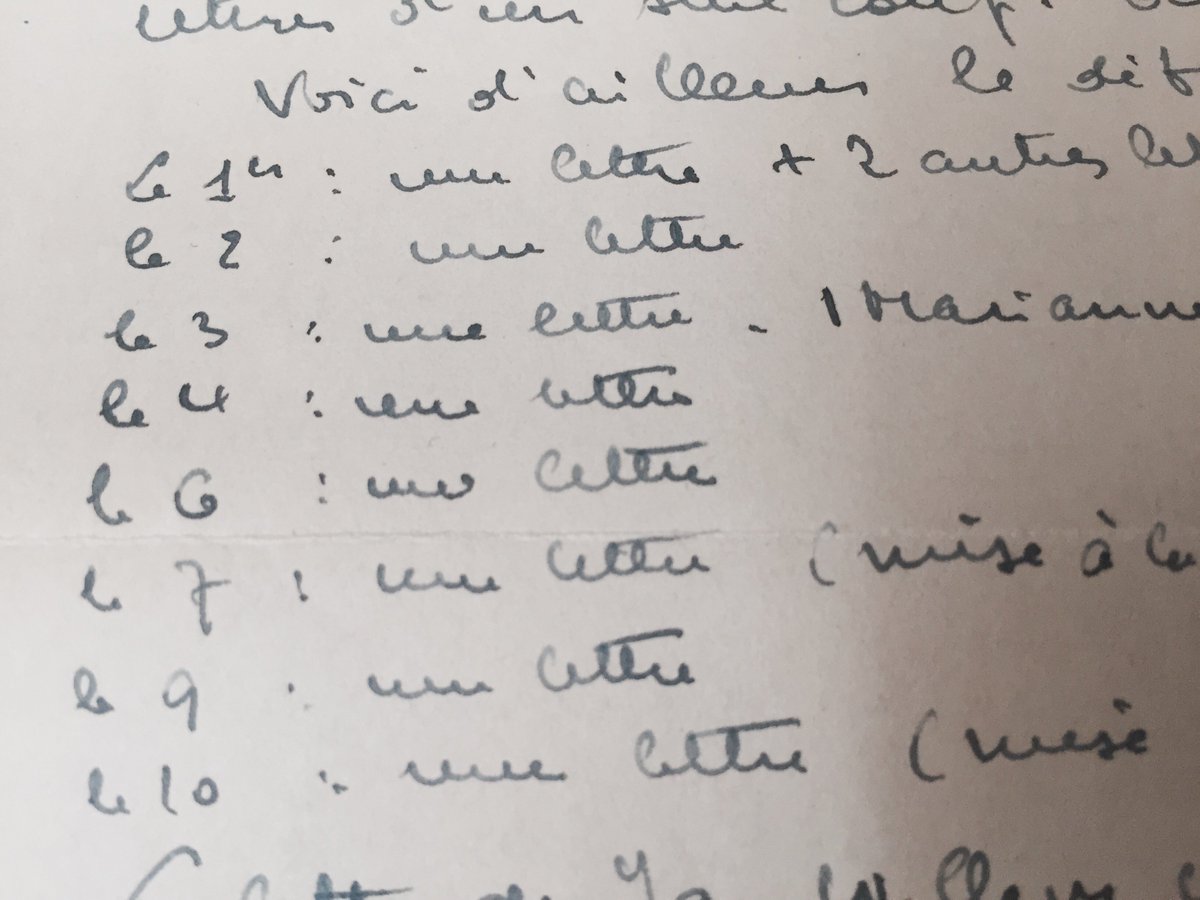 d'un seul coup.
Voici d'ailleurs le dét
Le 1er : une lettre + 2 autres let
le 2 : une lettre
le 3 : une lettre - 1 Marianne
le 4 : une lettre
le 6 : une lettre
le 7 : une lettre (mise à la
le 9 : une lettre
le 10 : une lettre (mise